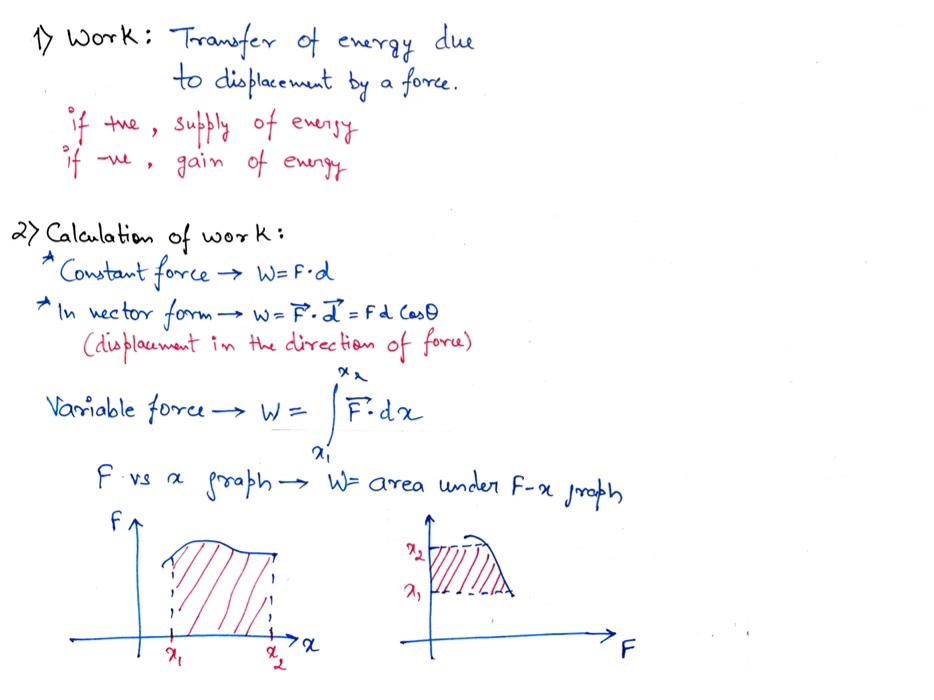 1) Work: Transfer of energy due
to displacement by a force.
if +ve, supply of energy
if -ve, gain of energy
2) Calculation of work:
* Constant force → W = F·d
* In vector form → W = F⃗·d⃗ = Fd Cosθ
(displacement in the direction of force)
Variable force → W = ∫ₓ₁ˣ² F⃗·dx
F vs x graph → W = area under F-x graph
F
x₁
x₂
x
x₂
x₁
F